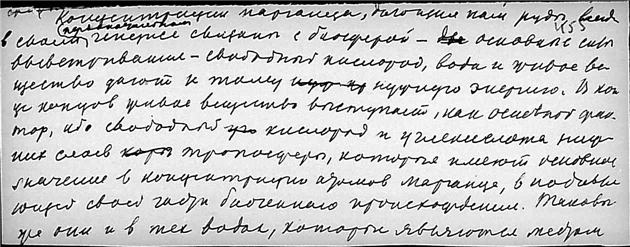 Концентрации марганца, дающие нам руды, всегда
в своем первоначальном генезисе связаны с биосферой – основные силы
выветривания – свободный кислород, вода и живое ве
щество дают к тому нужную энергию. В кон
це концов живое вещество выступает, как основной фак
тор, ибо свободный кислород и углекислота ниж
них слоев тропосферы, которые имеют основное
значение в концентрации атомов марганца, в подавля
ющей своей части биогенного происхождения. Таковы
же они и в тех водах, которые являются местом